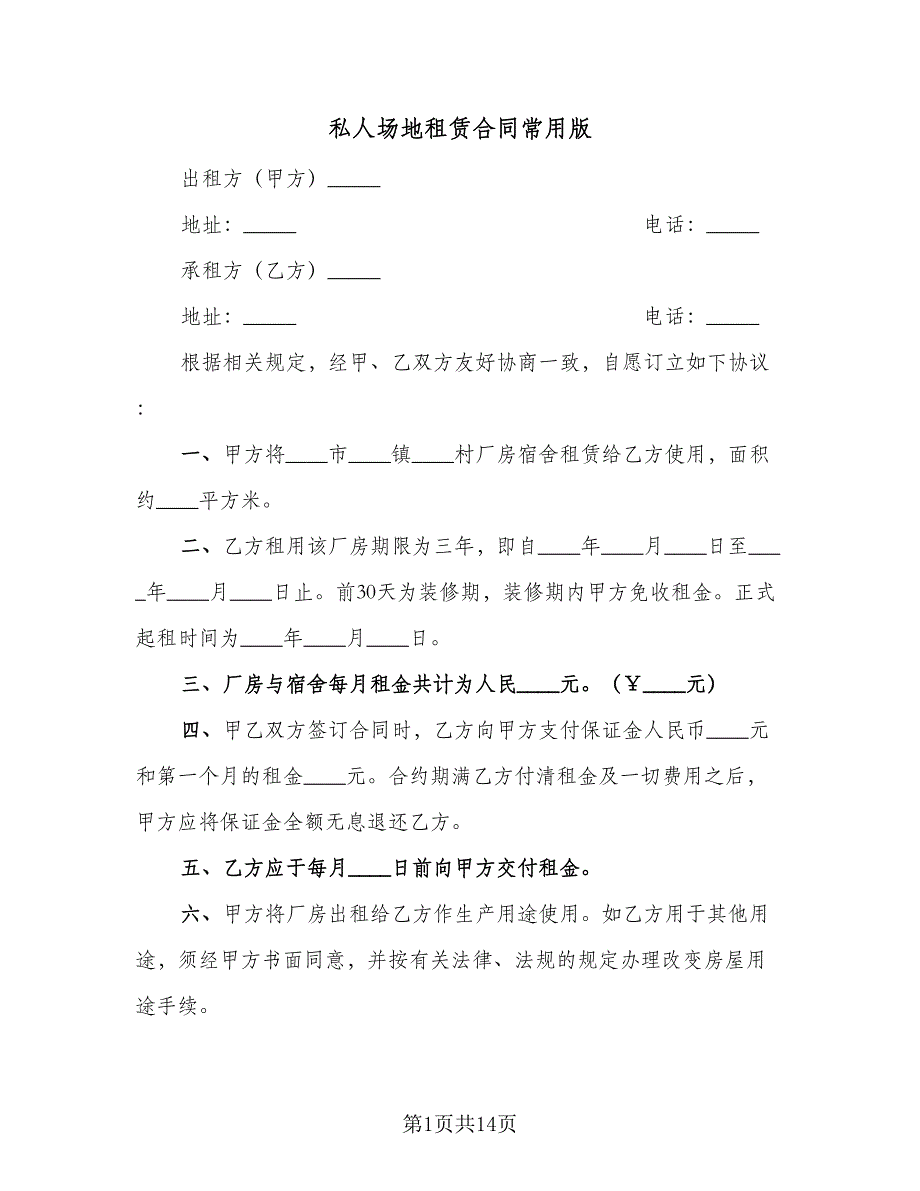 私人场地租赁合同常用版
出租方（甲方）_____
地址：_____ 电话：_____
承租方（乙方）_____
地址：_____ 电话：_____
根据相关规定，经甲、乙双方友好协商一致，自愿订立如下协议
：
一、甲方将____市____镇____村厂房宿舍租赁给乙方使用，面积
约____平方米。
二、乙方租用该厂房期限为三年，即自____年____月____日至___
_年____月____日止。前30天为装修期，装修期内甲方免收租金。正式
起租时间为____年____月____日。
三、厂房与宿舍每月租金共计为人民____元。（￥____元）
四、甲乙双方签订合同时，乙方向甲方支付保证金人民币____元
和第一个月的租金____元。合约期满乙方付清租金及一切费用之后，
甲方应将保证金全额无息退还乙方。
五、乙方应于每月____日前向甲方交付租金。
六、甲方将厂房出租给乙方作生产用途使用。如乙方用于其他用
途，须经甲方书面同意，并按有关法律、法规的规定办理改变房屋用
途手续。
第1页共14页